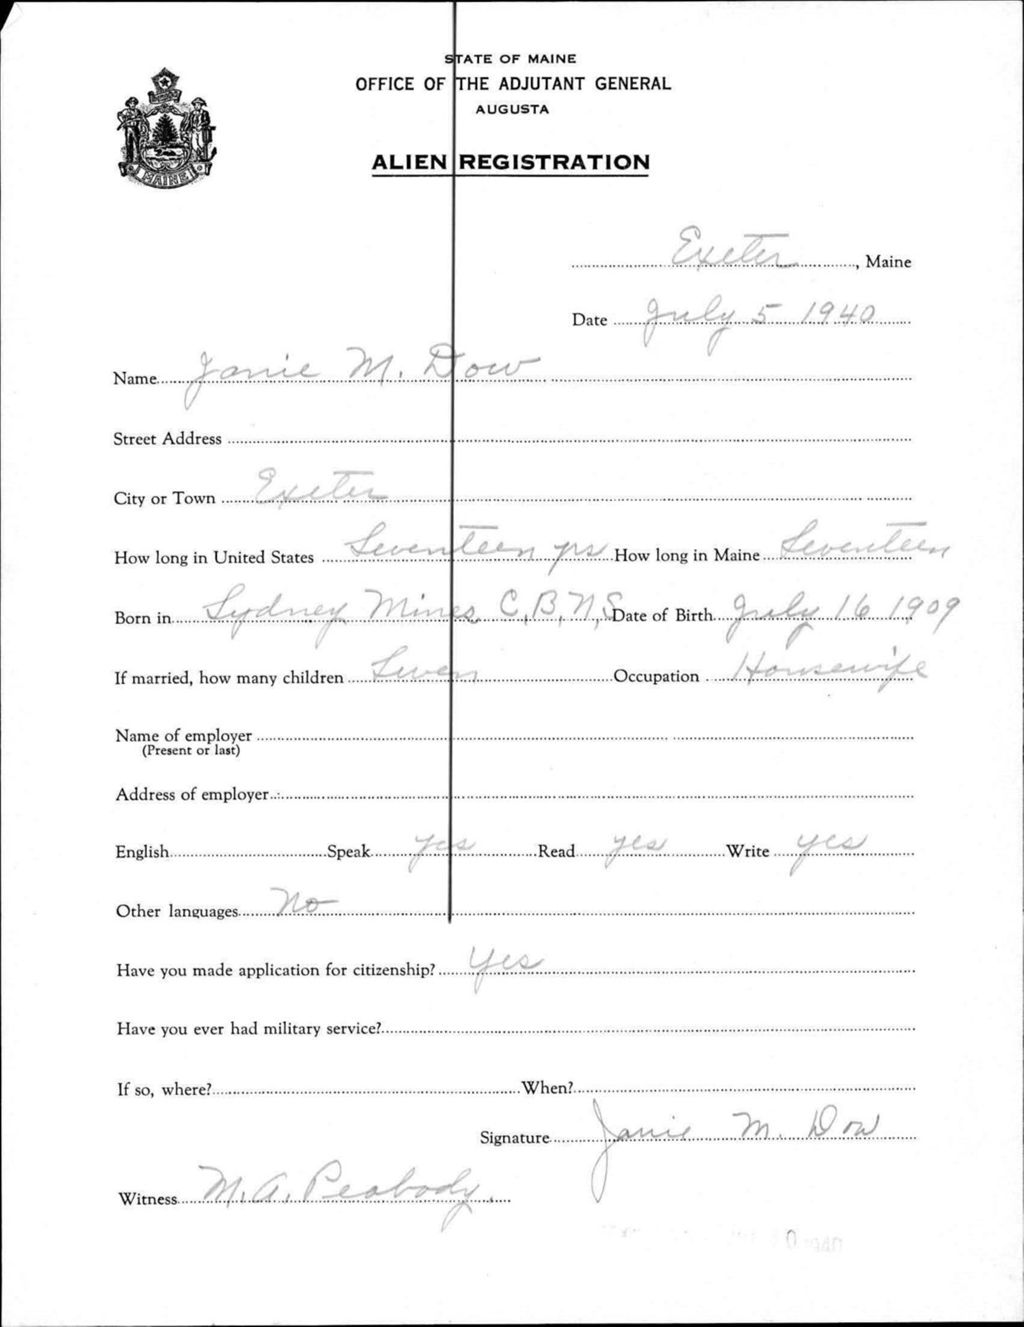 STATE OF MAINE
OFFICE OF THE ADJUTANT GENERAL
AUGUSTA
ALIEN REGISTRATION
MAINE
Exeter, Maine
Date July 5 1940
Name Janie M. Dow
Street Address
City or Town Exeter
How long in United States Seventeen yrs How long in Maine Seventeen
Born in Sydney Mines, C.B., N.S. Date of Birth July 16 1909
If married, how many children Seven Occupation Housewife
Name of employer
(Present or last)
Address of employer
English Speak yes Read yes Write yes
Other languages No
Have you made application for citizenship? Yes
Have you ever had military service?
If so, where? When?
Signature Janie M. Dow
Witness M. A. Peabody.